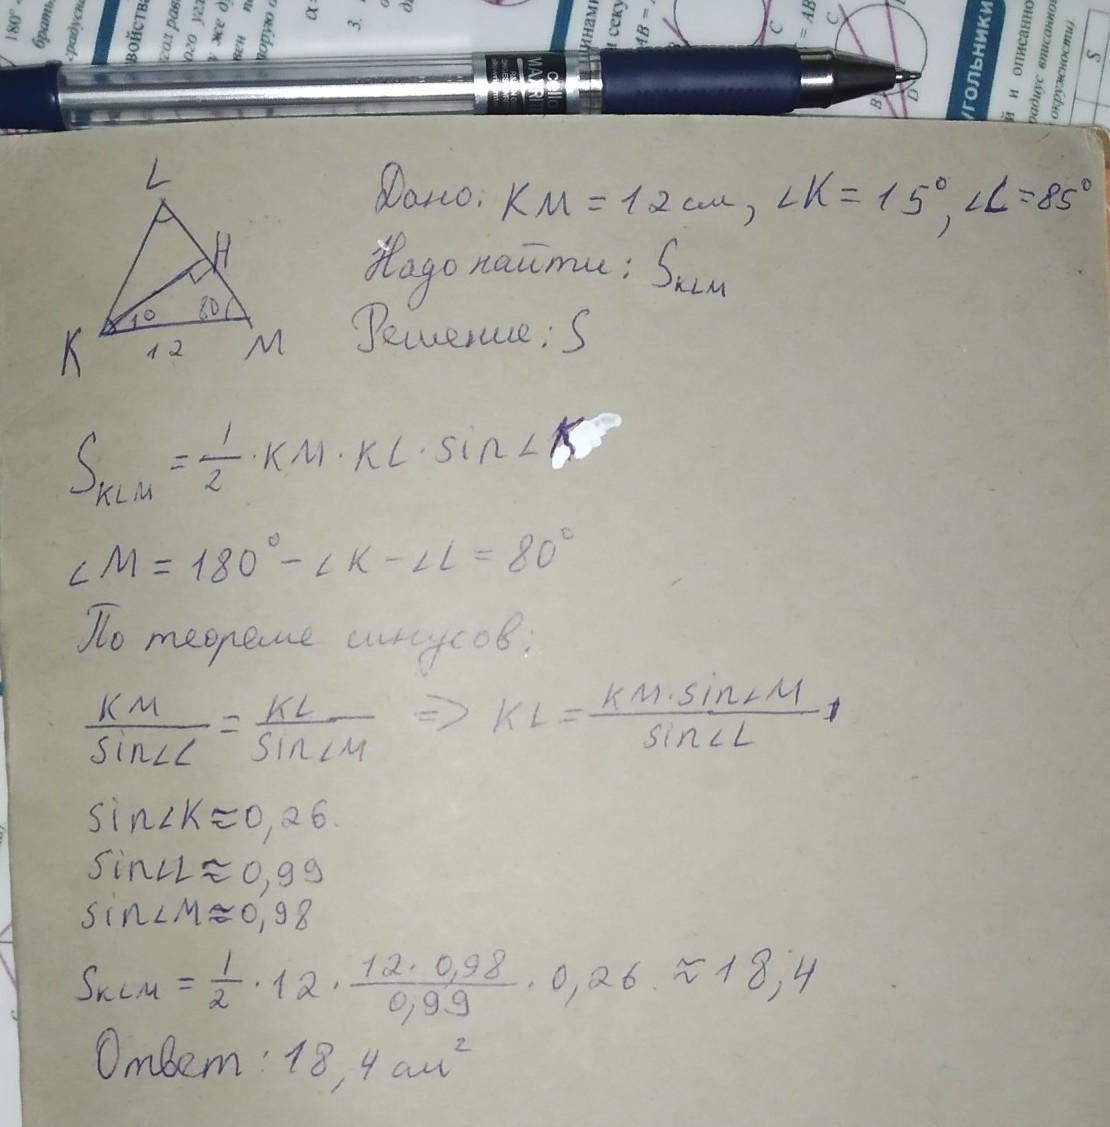 180°
брать,
L
H
K
10
80
12
M
Дано: KM = 12 см, ∠K = 15°, ∠L = 85°
Надо найти: S_KLM
Решение: S
S_KLM = 1/2 · KM · KL · sin∠K
∠M = 180° − ∠K − ∠L = 80°
По теореме синусов:
KM/sin∠L = KL/sin∠M => KL = KM·sin∠M/sin∠L
sin∠K ≈ 0,26.
sin∠L ≈ 0,99
sin∠M ≈ 0,98
S_KLM = 1/2 · 12 · 12·0,98/0,99 · 0,26 ≈ 18,4
Ответ: 18,4 см²